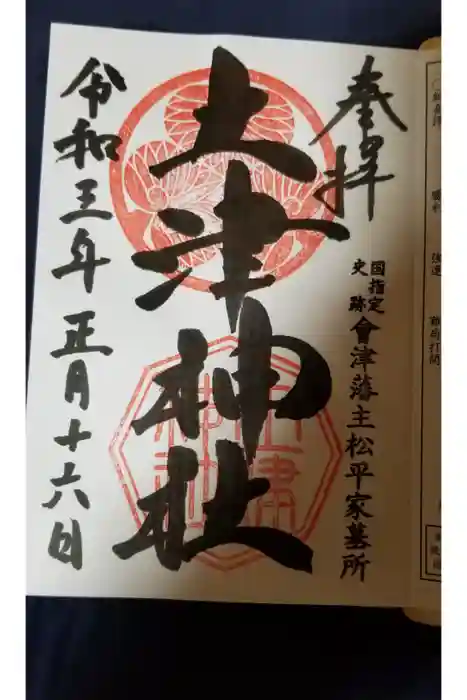 奉拝
国指定
史跡
會津藩主松平家墓所
土津神社
令和三年正月十六日